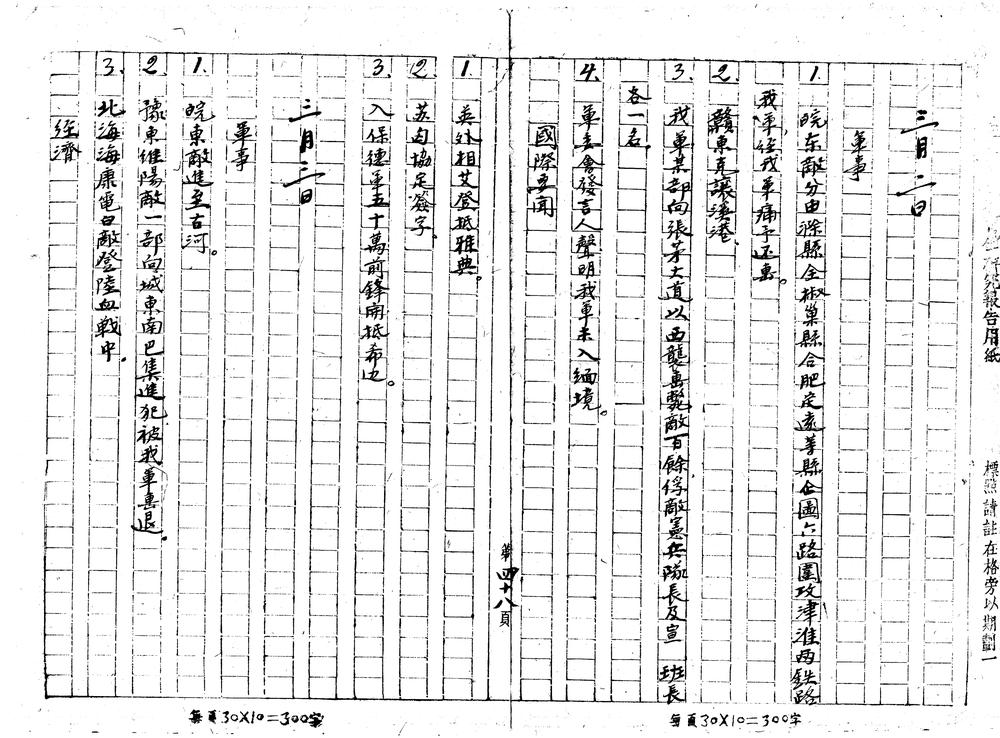 研究報告用紙
標點請註在格旁以期劃一
三月二日
軍事
1. 皖东敵分由滁縣全椒巢縣合肥定遠等縣企圖六路圍攻津淮两鉄路
我軍經我軍痛予还擊。
2. 贛東克讓溪港、
3. 我軍某部向張茅大道以西襲擊斃敵百餘俘敵憲兵隊長及宣 班長
各一名。
4. 軍委會發言人聲明我軍未入缅境。
國際要聞
1. 英外相艾登抵雅典。
2. 苏匈協定簽字、
3. 入保德軍五十萬前鋒南抵希边。
第四十八頁
三月三日
軍事
1. 皖東敵進至古河。
2. 豫東淮陽敵一部向城東南巴集進犯被我軍擊退。
3. 北海海康電白敵登陸血戰中。
经濟
每頁30X10=300字
每頁30X10=300字